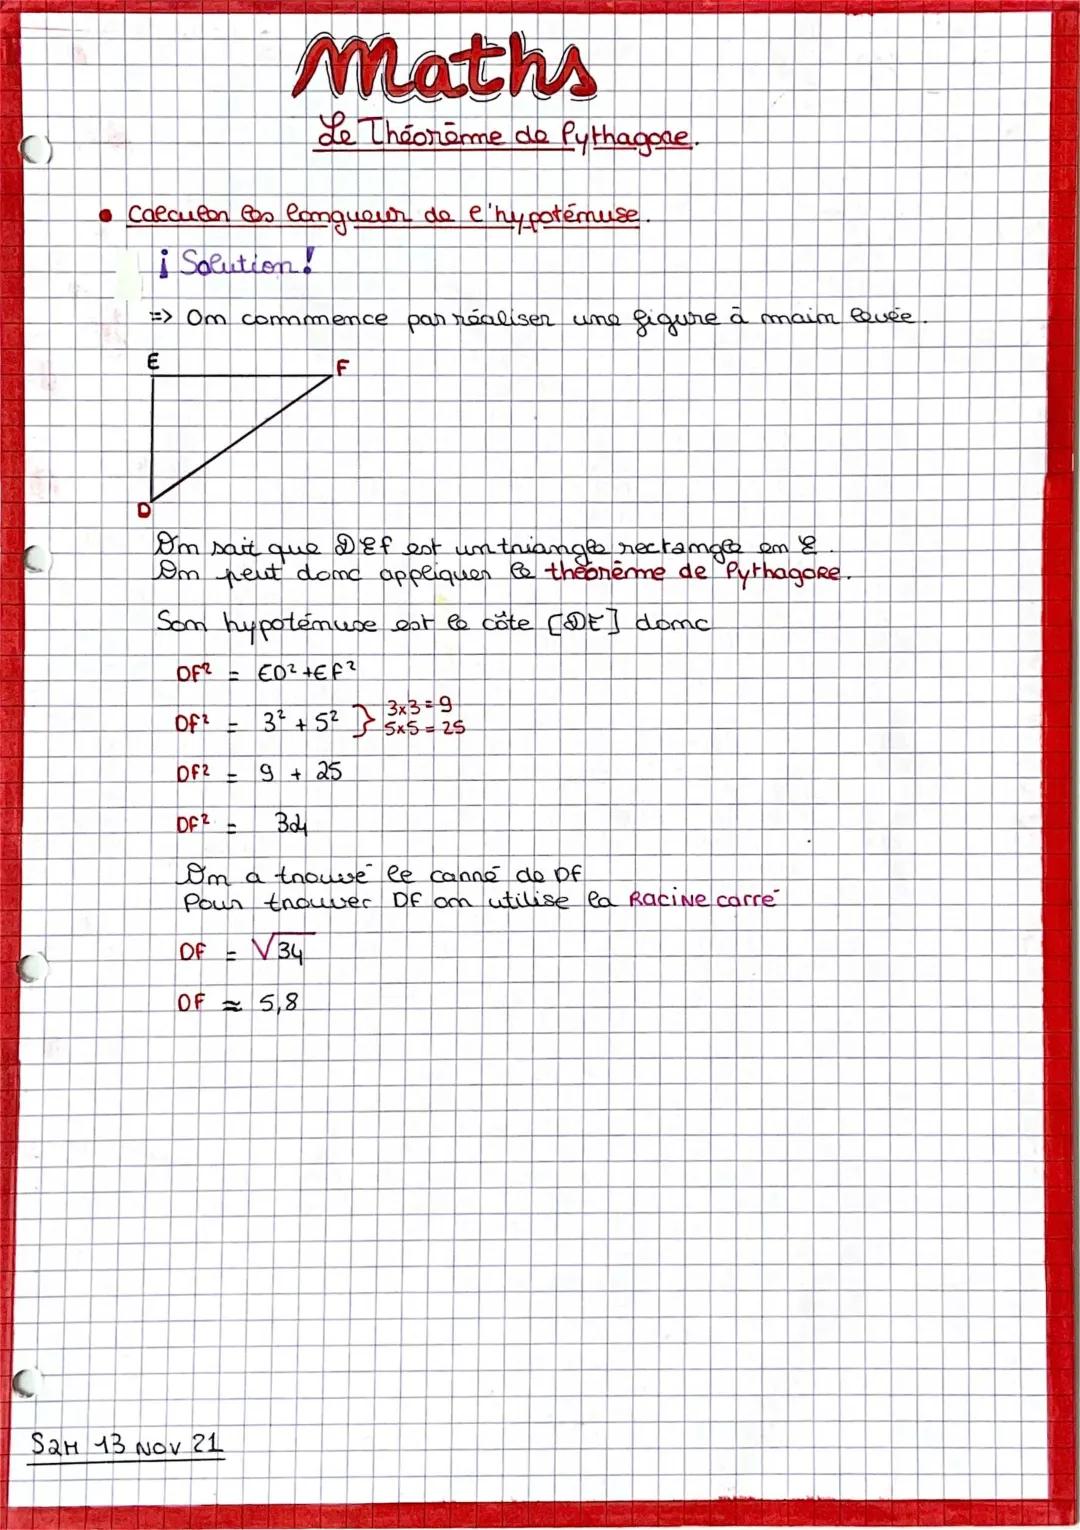 Maths
Le Théorème de Pythagore.
• Calculer la longueur de l'hypoténuse.
¡ Solution !
=> On commence par réaliser une figure à main levée.
E
F
D
On sait que DEF est un triangle rectangle en E.
On peut donc appliquer le théorème de Pythagore.
Son hypoténuse est le côte [DF] donc
DF² = ED² + EF²
DF² = 3² + 5² } 3x3 = 9
5x5 = 25
DF² = 9 + 25
DF² = 34
On a trouvé le carré de DF
Pour trouver DF on utilise la Racine carré
DF = √34
DF ≈ 5,8
S2H 13 NOV 21